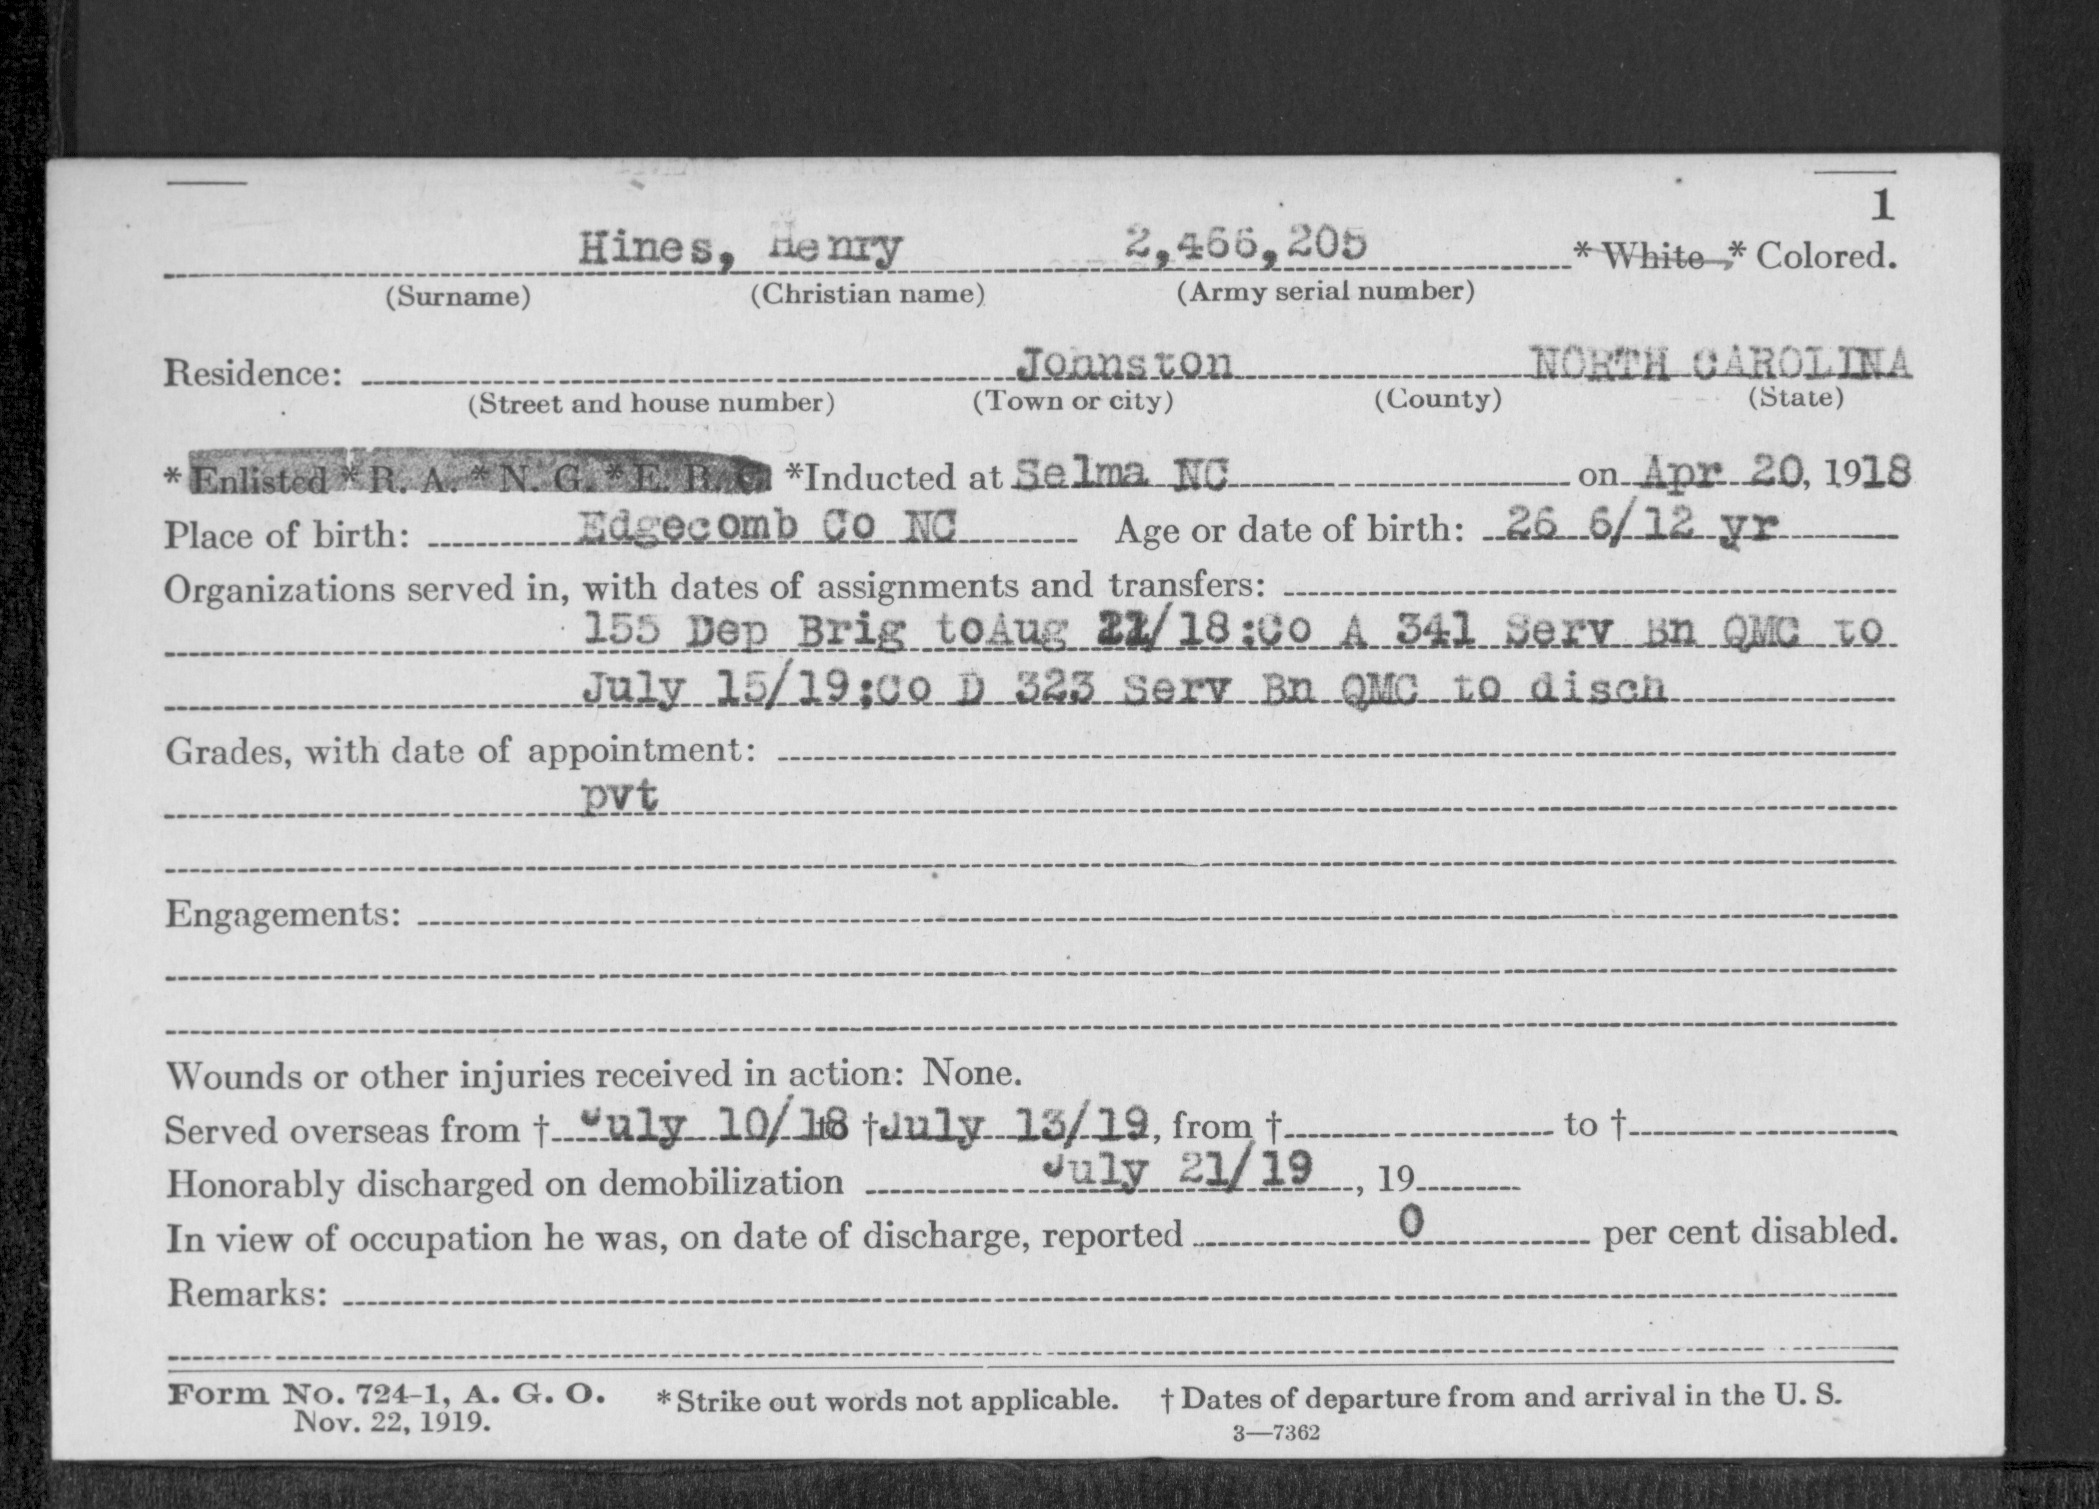 1
Hines, Henry 2,466,205 * White * Colored.
(Surname) (Christian name) (Army serial number)
Residence: Johnston NORTH CAROLINA
(Street and house number) (Town or city) (County) (State)
* Enlisted * R. A. * N. G. * E. R. C. *Inducted at Selma NC on Apr 20, 1918
Place of birth: Edgecomb Co NC Age or date of birth: 26 6/12 yr
Organizations served in, with dates of assignments and transfers:
155 Dep Brig toAug 21/18;Co A 341 Serv Bn QMC to
July 15/19;Co D 323 Serv Bn QMC to disch
Grades, with date of appointment:
pvt
Engagements:
Wounds or other injuries received in action: None.
Served overseas from † July 10/18 to † July 13/19, from † to †
Honorably discharged on demobilization July 21/19, 19
In view of occupation he was, on date of discharge, reported 0 per cent disabled.
Remarks:
Form No. 724-1, A. G. O. * Strike out words not applicable. † Dates of departure from and arrival in the U. S.
Nov. 22, 1919. 3—7362